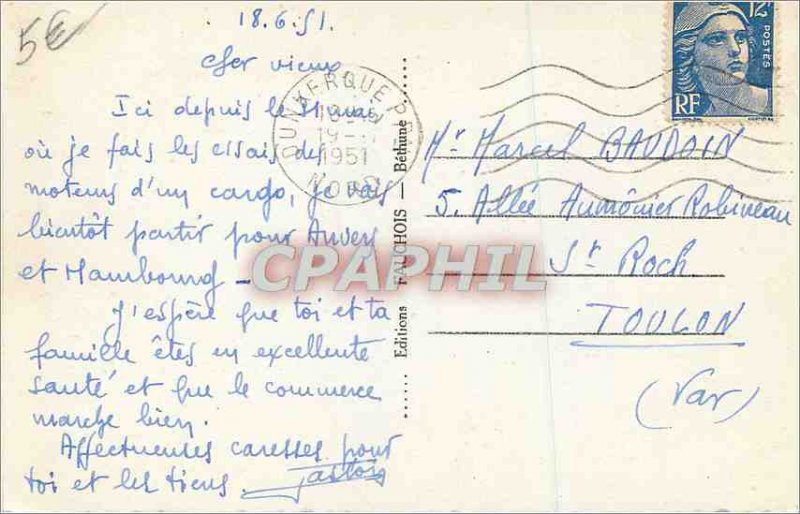 5€
18.6.51.
Cher vieux
Ici depuis le 31 mai
où je fais les essais des
moteurs d'un cargo, je vais
bientôt partir pour Anvers
et Hambourg
J'espère que toi et ta
famille êtes en excellente
santé et que le commerce
marche bien.
Affectueuses caresses pour
toi et les tiens.
Gaston
DUNKERQUE
19
1951
NORD
Editions FAUCHOIS — Béthune
12F
POSTES
RF
Mr Marcel BAUDOIN
5. Allée Aumônier Robineau
St Roch
TOULON
(Var)
CPAPHIL